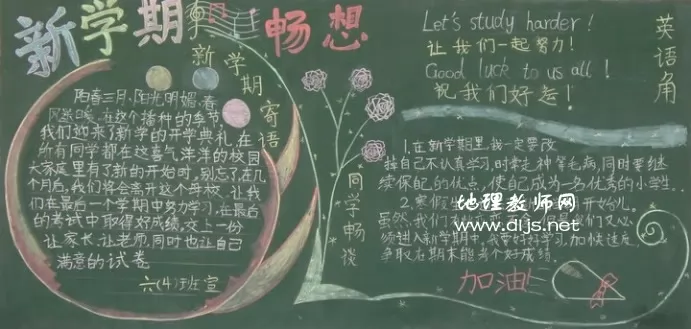 新学期
畅想
新学期寄语
阳春三月,阳光明媚,春
风送暖,在这个播种的季节,
我们迎来了新学的开学典礼,在
所有同学都在这喜气洋洋的校园
大家庭里有了新的开始时,别忘了,在几
个月后,我们将会离开这个母校,让我
们在最后一个学期中努力学习,在最后
的考试中取得好成绩,交上一份
让家长,让老师,同时也让自己
满意的试卷
六(4)班宣
同学畅谈
Let's study harder!
让我们一起努力!
Good luck to us all!
祝我们好运!
英语角
1.在新学期里,我一定要改
我自己不认真学习,时常走神等毛病,同时要继
续保自己的优点,使自己成为一名优秀的小学生..
2.寒假 开始儿。
虽然,我们 我们又必
须进入新学期中,我要好好学习,加快速度,
争取在期末能考个好成绩。
加油!
地理教师网
www.dljs.net